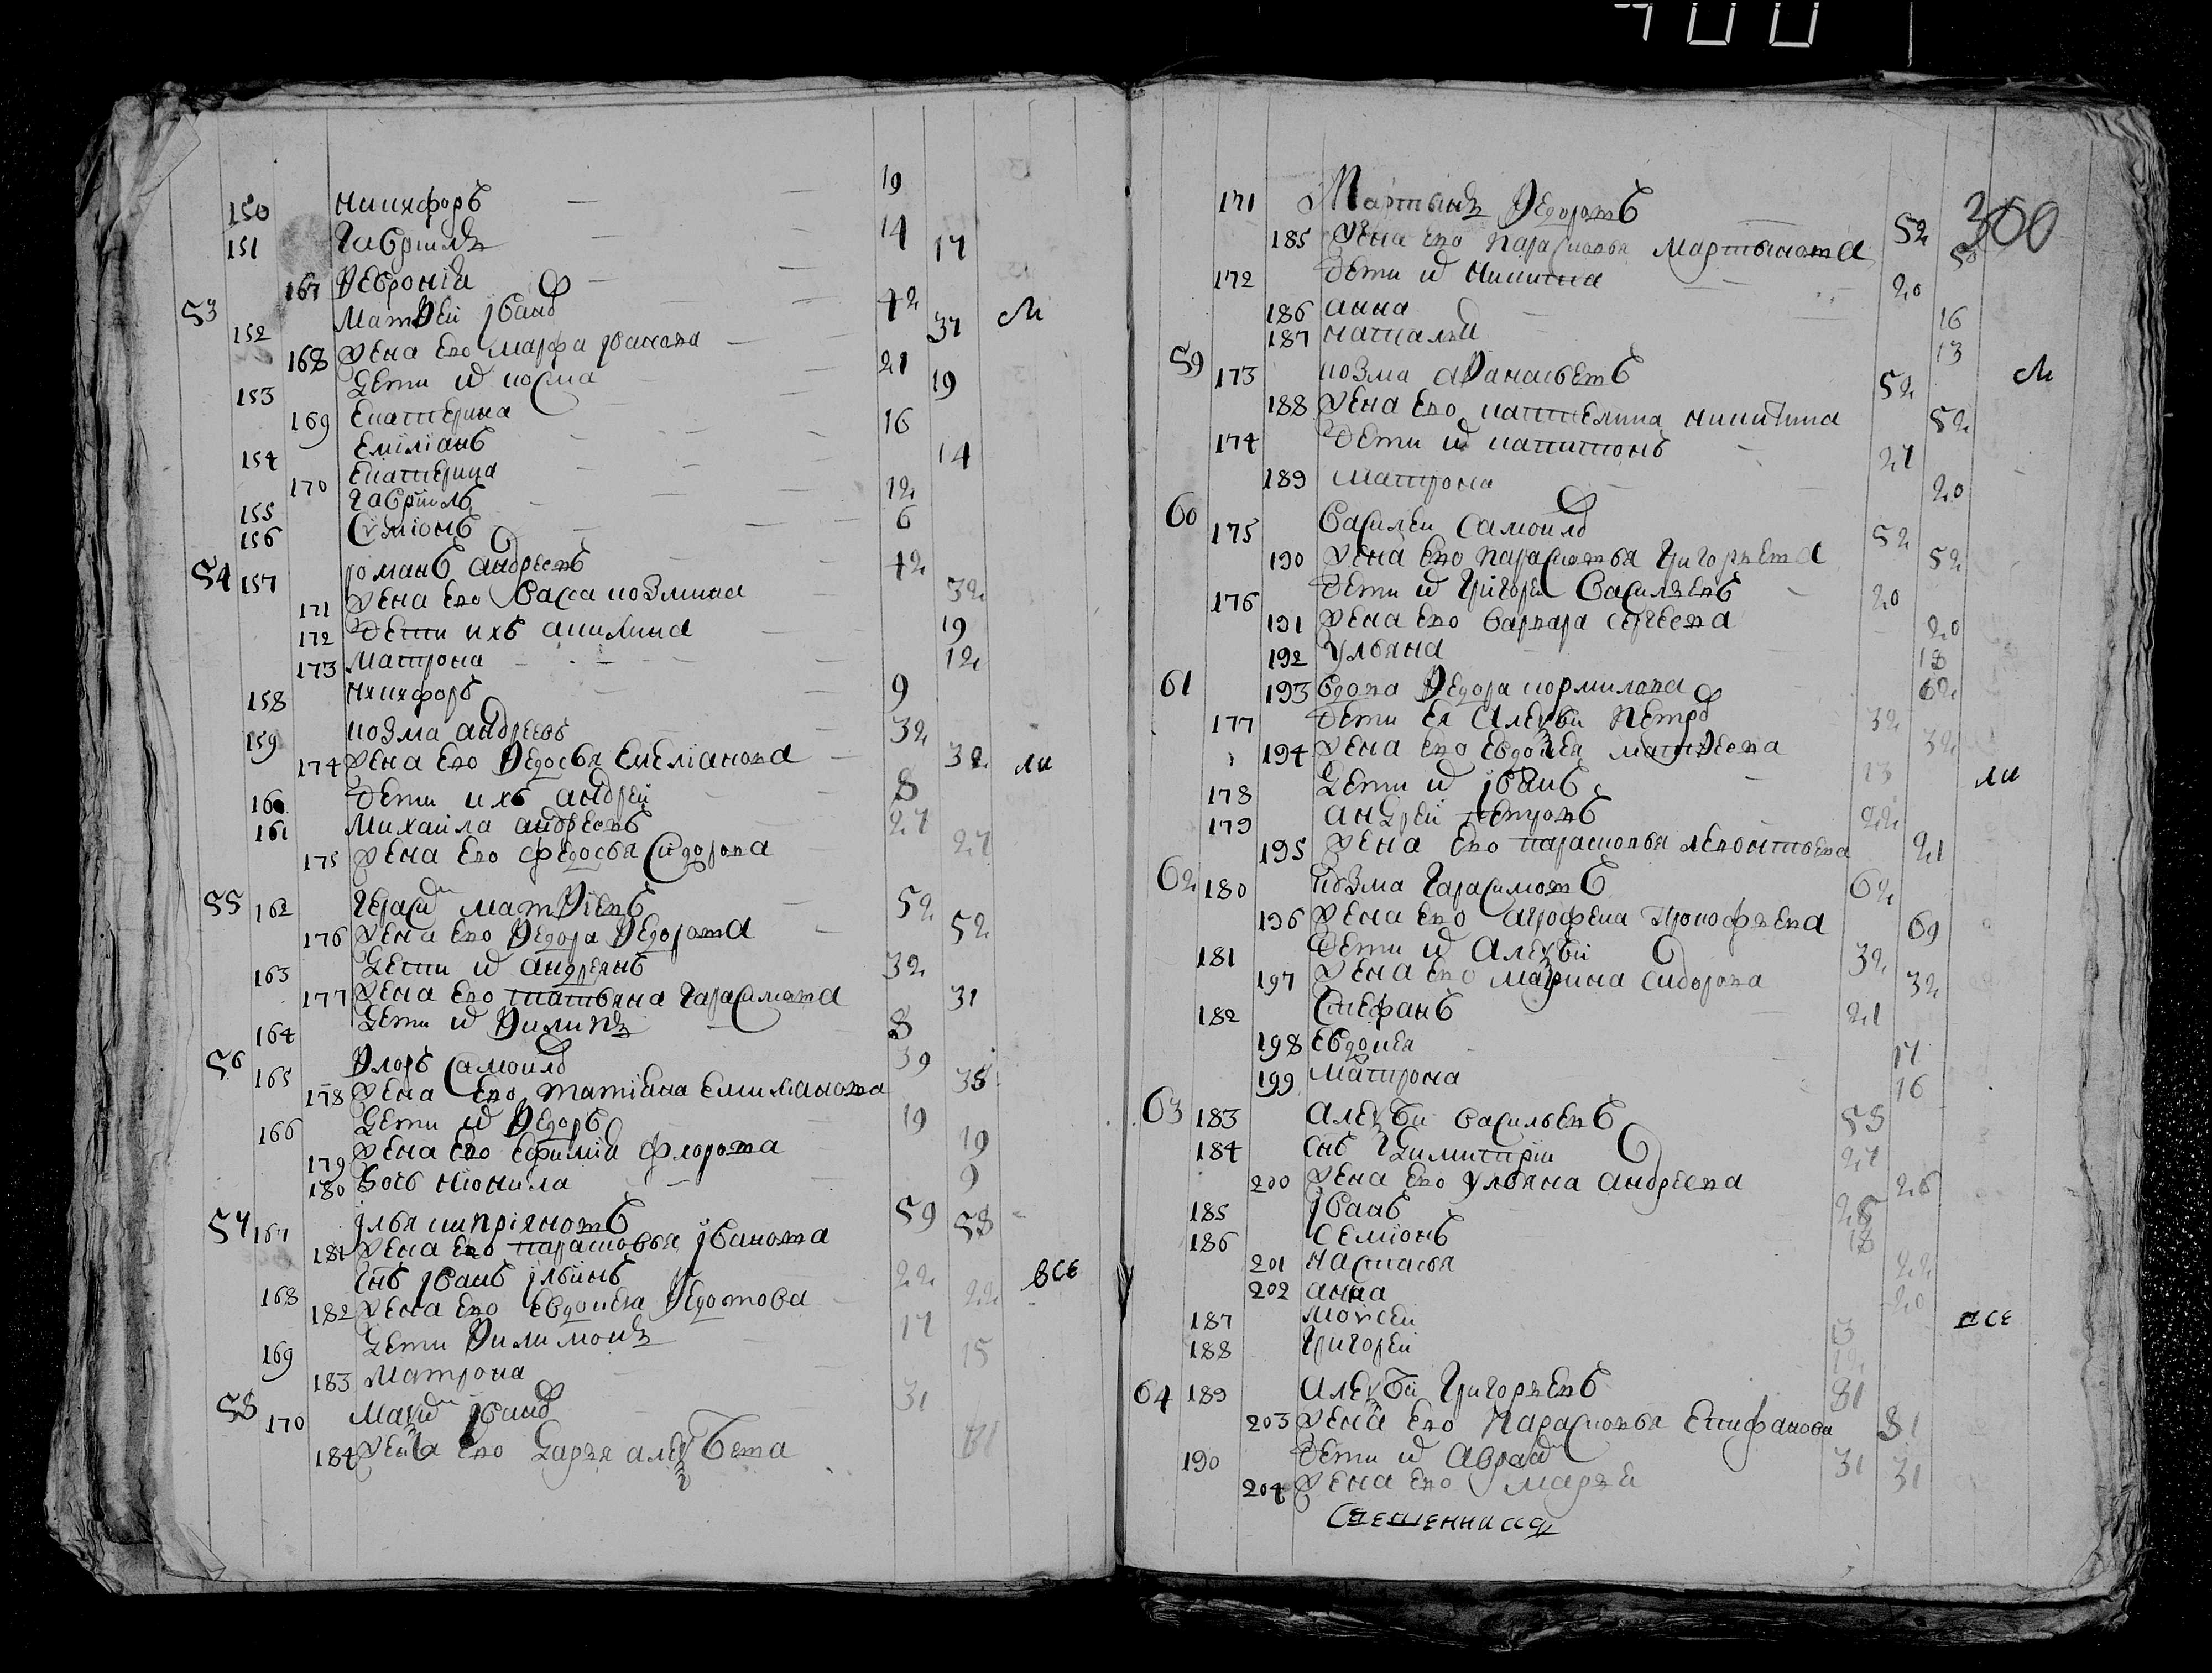 400
150 никифоръ 19
151 Гаврилъ 14
167 Ѳеврониа 17
53 152 Матѳеи Иванов 42 ли
168 жена его марфа иванова 37
153 дети их косма 21
169 Екатерина 19
154 Емілианъ 16
170 Екатерина 14
155 Гавриилъ 12
156 Сѵмионъ 6
54 157 романъ андреевъ 42
171 жена его Васса козмина 32
172 дети ихъ акилина 19
173 матрона 12
158 никифоръ 9
159 козма андреевъ 32
174 жена его Ѳедосья Емелianова 32 ли
160 дети ихъ андрей 8
161 михаила андреевъ 27
175 жена его федосья Сидорова 27
55 162 Герасим матѳиевъ 52
176 жена его Ѳедора Ѳедорова 52
163 дети их андреянъ 32
177 жена его татьяна Гарасимова 31
164 дети их Ѳилипъ 8
56 165 Ѳлоръ Самоилов 39
178 жена его татиана Емилианова 38
166 дети их Ѳедоръ 19
179 жена его Ефимиа флорова 19
180 дочь нионила 9
57 167 илья киприяновъ 59
181 жена его парасковья иванова 58
168 снъ иванъ ильинъ 22 все
182 жена его Евдокея Ѳедотова 22
169 дети Ѳилимонъ 17
183 матрона 15
58 170 Максим Иванов 31
184 жена его Дарья алеѯѣева 31
300
171 Мартынъ Ѳедоровъ 52
185 жена его парасковья мартынова 50
172 дети их никита 20
186 анна 16
187 наталья 13
59 173 козма аѲанасьевъ 52 ли
188 жена его кателина никитина 52
174 дети их капитонъ 27
189 матрона 20
60 175 Василеи Самоилов 52
190 жена его парасковья Григорьева 52
176 дети их Григорей Васильевъ 20
191 жена его варвара сергеева 20
192 ульяна 18
61 193 вдова Ѳедора кормилова 62
177 дети ея алеѯѣи петров 32
194 жена его Евдокея матѳеева 32
178 дети их иванъ 13 ли
179 андрей петровъ 22
195 жена его парасковья левонтьева 21
62 180 козма Гарасимовъ 62
196 жена его агрофена Прокофьева 69
181 дети их алеѯѣй 32
197 жена его марина сидорова 32
182 Стефанъ 21
198 Евдокея 17
199 матрона 16
63 183 алеѯѣи васильевъ 58
184 снъ димитрии 27
200 жена его ульяна андреева 26
185 иванъ 25
186 семионъ 18
201 настасья 22
202 анна 20
187 моисеи все
188 Григорей 12
64 189 алеѯѣй Григорьевъ 81
203 жена его Парасковья Епифанова 81
190 дети их Авраам 31
204 жена его марья 31
Свешенникъ